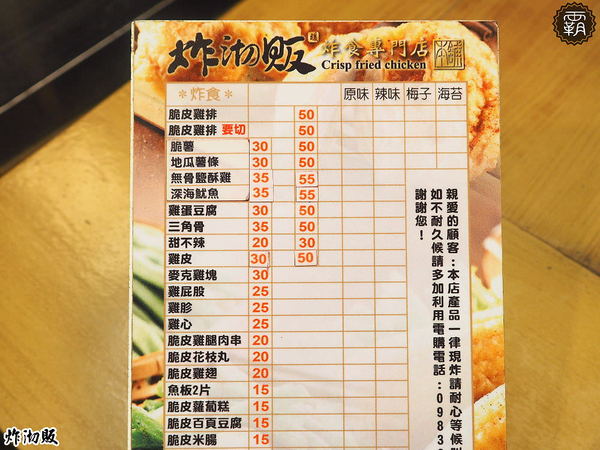 炸沏販 炸食專門店
Crisp fried chicken
本舖
霸
*炸食* 原味 辣味 梅子 海苔
脆皮雞排 50
脆皮雞排 要切 50
脆薯 30 50
地瓜薯條 30 50
無骨鹽酥雞 35 55
深海魷魚 35 55
雞蛋豆腐 30 50
三角骨 35 50
甜不辣 20 30
雞皮 30 50
麥克雞塊 30
雞屁股 25
雞胗 25
雞心 25
脆皮雞腿肉串 20
脆皮花枝丸 20
脆皮雞翅 20
魚板2片 15
脆皮蘿蔔糕 15
脆皮百頁豆腐 15
脆皮米腸 15
親愛的顧客：本店產品一律現炸請耐心等候
如不耐久候請多加利用電購電話：0983
謝謝您！
炸沏販